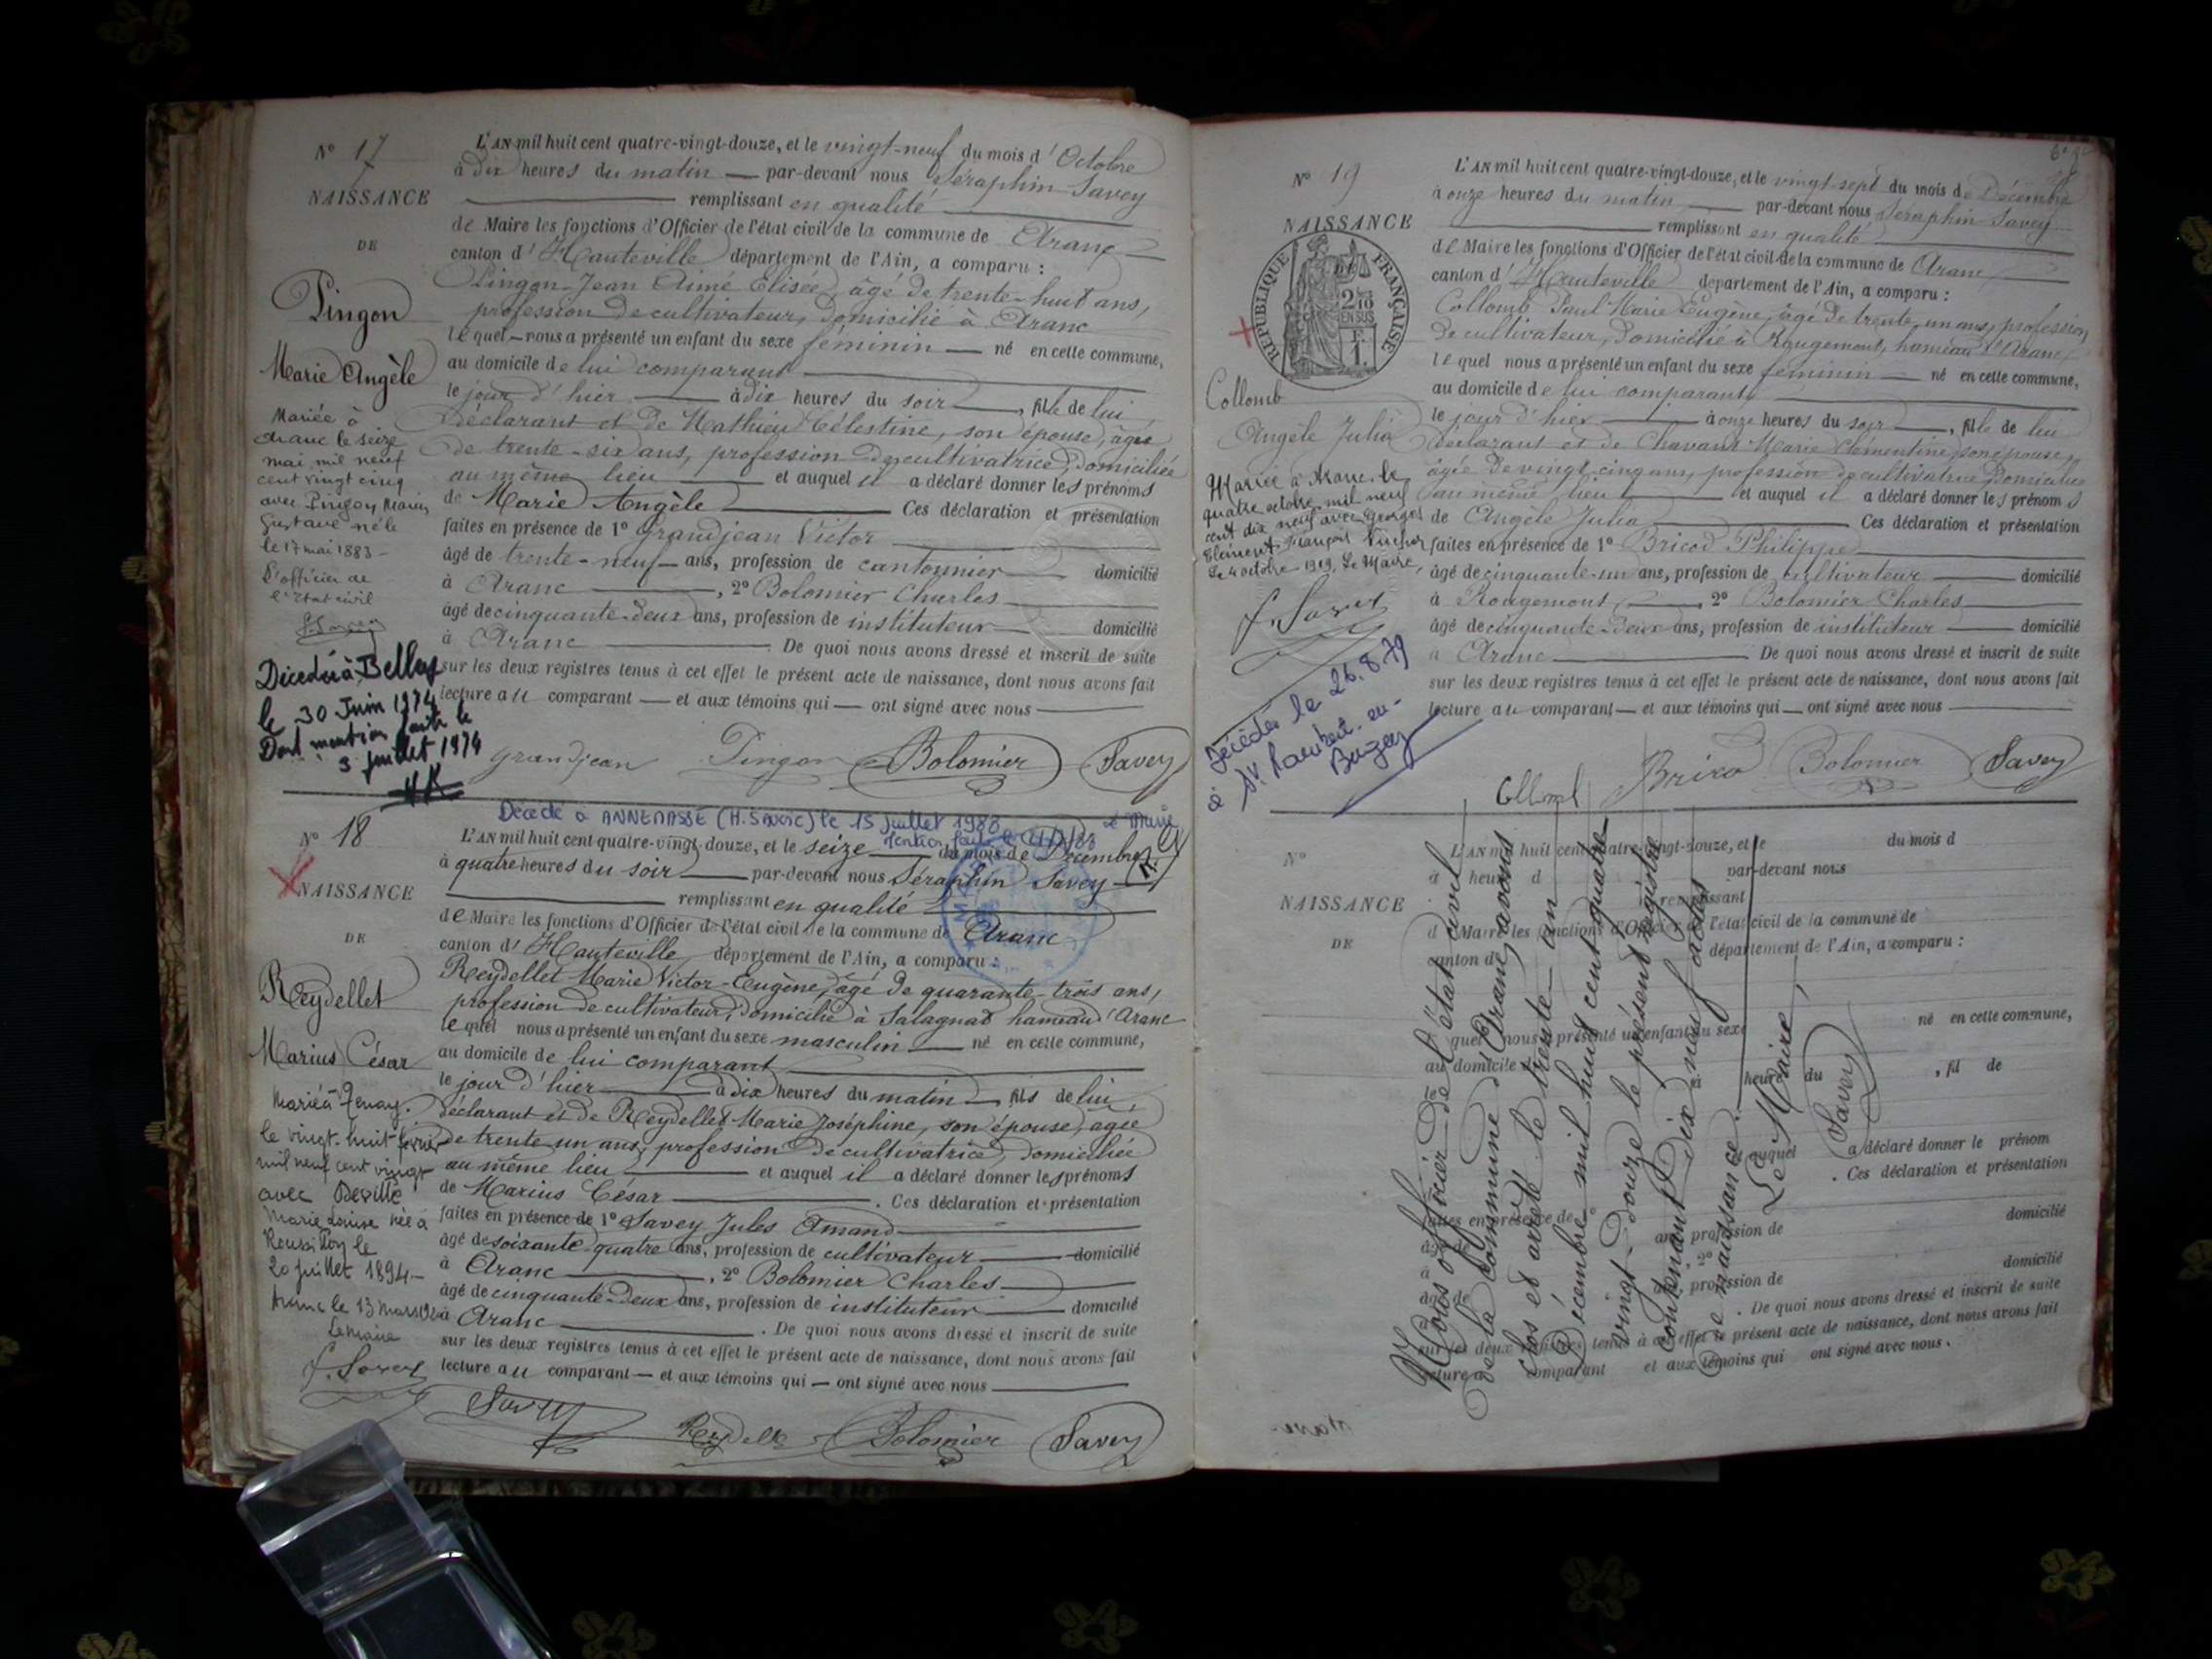 N° 17
NAISSANCE
DE
Pingon
Marie Angèle
Mariée à
Aranc le seize
mai mil neuf
cent vingt cinq
avec Pingon Marius
Gustave né le
le 17 mai 1883 -
L'officier de
l'Etat civil
Décédée à Belley
le 30 Juin 1974
Dont mention faite le
3 juillet 1974
L'AN mil huit cent quatre-vingt-douze, et le vingt-neuf du mois d'Octobre
à dix heures du matin par-devant nous Séraphin Savey
remplissant en qualité
de Maire les fonctions d'Officier de l'état civil de la commune de Aranc
canton d'Hauteville département de l'Ain, a comparu :
Pingon Jean Aimé Elisée, âgé de trente-huit ans,
profession de cultivateur, domicilié à Aranc
lequel nous a présenté un enfant du sexe féminin né en cette commune,
au domicile de lui comparant
le jour d'hier à dix heures du soir, fille de lui
déclarant et de Mathieu Célestine, son épouse, âgée
de trente-six ans, profession de cultivatrice, domiciliée
au même lieu et auquel il a déclaré donner les prénoms
de Marie Angèle Ces déclaration et présentation
faites en présence de 1° Grandjean Victor
âgé de trente-neuf ans, profession de cantonnier domicilié
à Aranc, 2° Bolomier Charles
âgé de cinquante-deux ans, profession de instituteur domicilié
à Aranc. De quoi nous avons dressé et inscrit de suite
sur les deux registres tenus à cet effet le présent acte de naissance, dont nous avons fait
lecture au comparant et aux témoins qui ont signé avec nous
grandjean Pingon Bolomier Savey
Décédé à ANNEMASSE (H. SAVOIE) le 15 juillet 1983
N° 18
NAISSANCE
DE
Reydellet
Marius César
Marié à Tenay
le vingt-huit février
mil neuf cent vingt
avec Deville
Marie Louise née à
Roussillon le
20 juillet 1894 -
Aranc le 13 mars 1920
Le maire
f. Savey
L'AN mil huit cent quatre-vingt-douze, et le seize du mois de Décembre
à quatre heures du soir par-devant nous Séraphin Savey
remplissant en qualité
de Maire les fonctions d'Officier de l'état civil de la commune de Aranc
canton d'Hauteville département de l'Ain, a comparu :
Reydellet Marie Victor-Eugène, âgé de quarante-trois ans,
profession de cultivateur, domicilié à Salagnat hameau d'Aranc
lequel nous a présenté un enfant du sexe masculin né en cette commune,
au domicile de lui comparant
le jour d'hier à dix heures du matin, fils de lui
déclarant et de Reydellet Marie Joséphine, son épouse, âgée
de trente-un ans, profession de cultivatrice, domiciliée
au même lieu et auquel il a déclaré donner les prénoms
de Marius César. Ces déclaration et présentation
faites en présence de 1° Savey Jules Amand
âgé de soixante-quatre ans, profession de cultivateur domicilié
à Aranc, 2° Bolomier Charles
âgé de cinquante-deux ans, profession de instituteur domicilié
à Aranc. De quoi nous avons dressé et inscrit de suite
sur les deux registres tenus à cet effet le présent acte de naissance, dont nous avons fait
lecture au comparant et aux témoins qui ont signé avec nous
Savey Reydellet Bolomier Savey
N° 19
NAISSANCE
DE
RÉPUBLIQUE FRANÇAISE
Collomb
Angèle Julia
Mariée à Aranc le
quatre octobre mil neuf
cent dix neuf avec Georges
Clément François
Le 4 octobre 1919. Le Maire,
f. Savey
Décédée le 26.8.79
à St Rambert-en-
Bugey
L'AN mil huit cent quatre-vingt-douze, et le vingt-sept du mois de Décembre
à onze heures du matin par-devant nous Séraphin Savey
remplissant en qualité
de Maire les fonctions d'Officier de l'état civil de la commune de Aranc
canton d'Hauteville département de l'Ain, a comparu :
Collomb Paul Marie Eugène, âgé de trente-un ans, profession
de cultivateur, domicilié à Rougemont, hameau d'Aranc
lequel nous a présenté un enfant du sexe féminin né en cette commune,
au domicile de lui comparant
le jour d'hier à onze heures du soir, fille de lui
déclarant et de Chavant Marie Clémentine, son épouse,
âgée de vingt-cinq ans, profession de cultivatrice, domiciliée
au même lieu et auquel il a déclaré donner les prénoms
de Angèle Julia Ces déclaration et présentation
faites en présence de 1° Bricod Philippe
âgé de cinquante-un ans, profession de cultivateur domicilié
à Rougemont, 2° Bolomier Charles
âgé de cinquante-deux ans, profession de instituteur domicilié
à Aranc De quoi nous avons dressé et inscrit de suite
sur les deux registres tenus à cet effet le présent acte de naissance, dont nous avons fait
lecture au comparant et aux témoins qui ont signé avec nous
Collomb Brico Bolomier Savey
N°
NAISSANCE
DE
L'AN mil huit cent quatre-vingt-douze, et le du mois d
à heure d par-devant nous
remplissant
d Maire les fonctions d'Officier de l'état civil de la commune de
canton de département de l'Ain, a comparu :
quel nous a présenté un enfant du sexe né en cette commune,
au domicile d
à heure du , fil de
et auquel a déclaré donner le prénom
. Ces déclaration et présentation
faites en présence de 1°
âgé de ans, profession de domicilié
à 2°
âgé de ans, profession de domicilié
à . De quoi nous avons dressé et inscrit de suite
sur les deux registres tenus à cet effet le présent acte de naissance, dont nous avons fait
lecture a comparant et aux témoins qui ont signé avec nous.
Nous officier de l'état civil
de la commune d'Aranc, avons
clos et arrêté le trente-un
Décembre mil huit cent quatre-
vingt-douze le présent registre
contenant dix neuf actes
de naissance.
Le Maire,
Savey